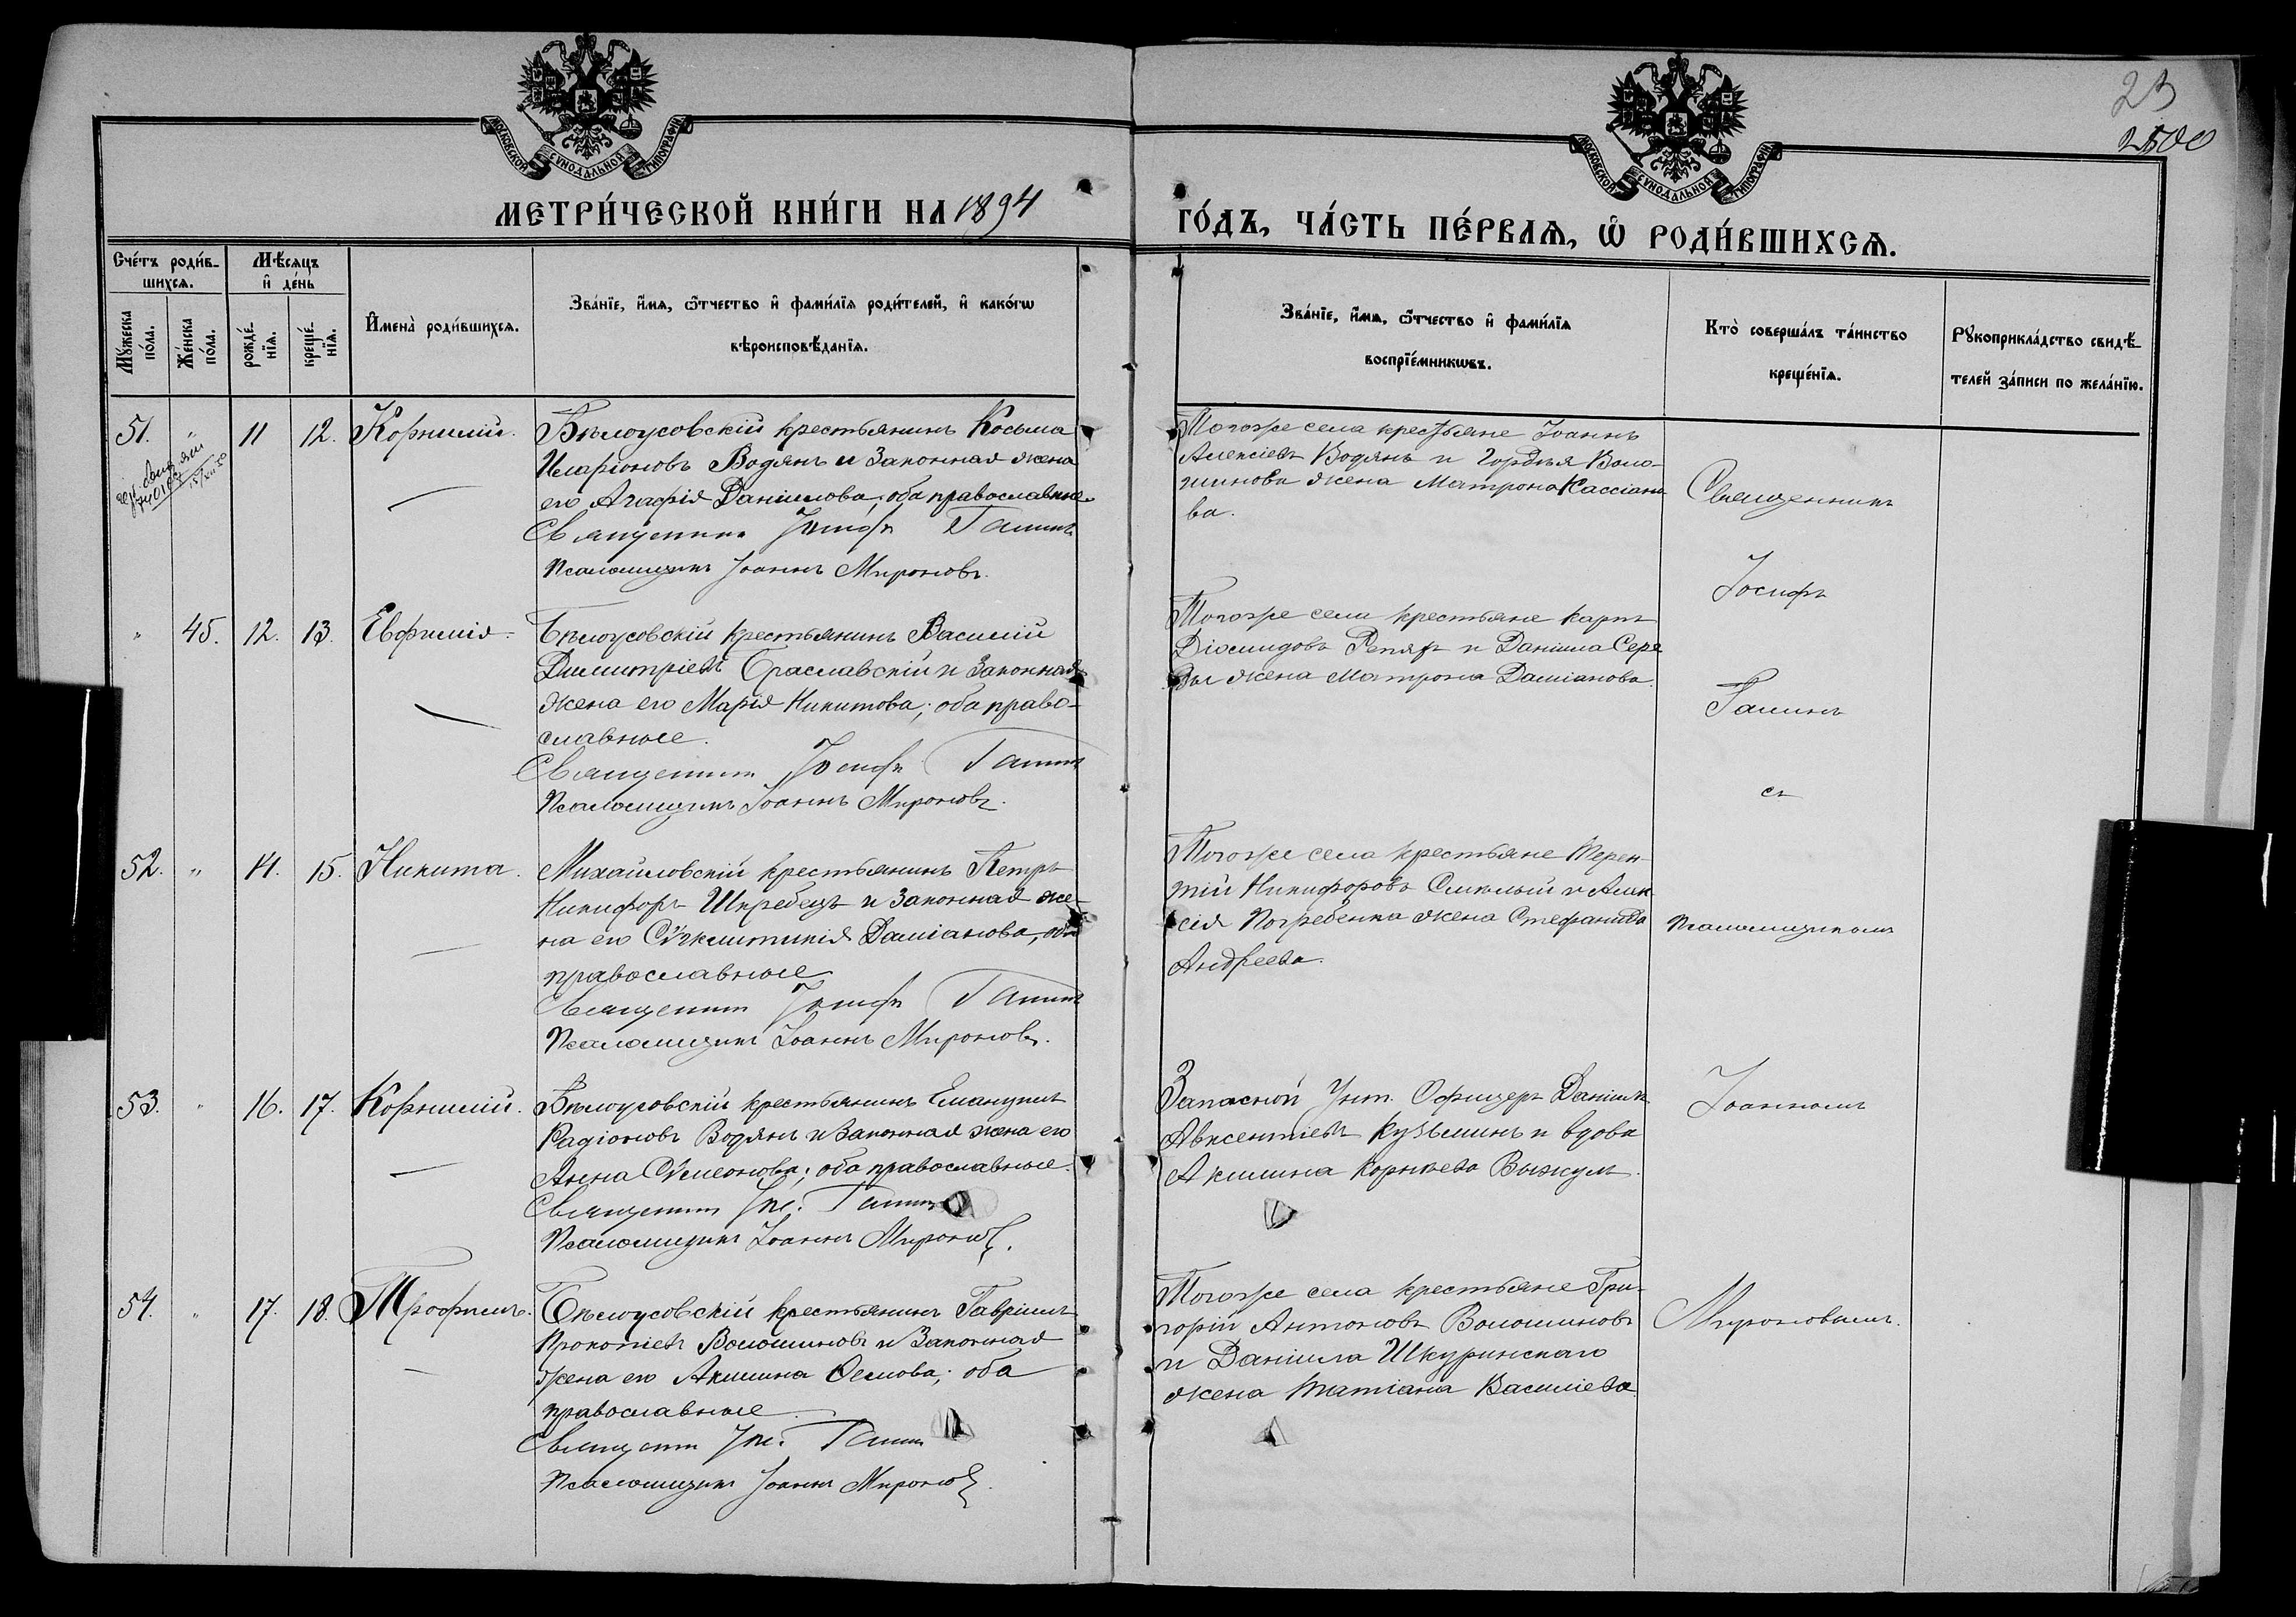 23
2500
МОСКОВСКОЙ СѴНОДАЛЬНОЙ ТИПОГРАФІИ
МОСКОВСКОЙ СѴНОДАЛЬНОЙ ТИПОГРАФІИ
МЕТРИ́ЧЕСКОЙ КНИ́ГИ НА 1894
ГО́ДЪ, ЧА́СТЬ ПЕ́РВАѦ, Ѡ҆ РОДИ́ВШИХСѦ.
Сче́тъ роди́в-
шихсѧ.
Мѣ́сѧцъ
и҆ де́нь
Му́жеска
по́ла.
Же́нска
по́ла.
рожде́-
нїѧ.
креще́-
нїѧ.
И҆мена̀ роди́вшихсѧ.
Зва́нїе, и҆́мѧ, ѻ҆́тчество и҆ фами́лїѧ роди́телей, и҆ како́гѡ
вѣроисповѣ́данїѧ.
Зва́нїе, и҆́мѧ, ѻ҆́тчество и҆ фами́лїѧ
воспрїе́мникѡвъ.
Кто̀ соверша́лъ та́инство
креще́нїѧ.
Рꙋкоприкла́дство свидѣ́-
телей за́писи по жела́нїю.
51. " 11 12. Корнилій.
Бѣлоусовскій крестьянинъ Косьма
Иларіоновъ Водянъ и законная жена
его Агафія Даніилова; оба православные.
Священникъ Іосифъ Ганинъ
Псаломщикъ Іоаннъ Мироновъ.
Тогоже села крестьяне Іоаннъ
Алексіевъ Водянъ и Гордѣя Воло-
шинова жена Матрона Кассіано-
ва.
" 45. 12. 13. Евфимія.
Бѣлоусовскій крестьянинъ Василій
Димитріевъ Браславскій и законная
жена его Марія Никитова; оба право-
славные.
Священникъ Іосифъ Ганинъ
Псаломщикъ Іоаннъ Мироновъ.
Тогоже села крестьяне Карпъ
Діомидовъ Репяхъ и Даніила Сере
ды жена Матрона Даміанова.
52. " 14. 15. Никита.
Михайловскій крестьянинъ Петръ
Никифоръ Шкребецъ и законная же-
на его Сѵнклитикія Даміанова, оба
православные
Священникъ Іосифъ Ганинъ
Псаломщикъ Іоаннъ Мироновъ.
Тогоже села крестьяне Терен-
тій Никифоровъ Смѣлый и Алек
сія Погребенка жена Стефанида
Андреева.
53. " 16. 17. Корнилій.
Бѣлоусовскій крестьянинъ Емануилъ
Радіоновъ Водянъ и законная жена его
Анна Сѵмеонова; оба православные.
Священникъ Іос. Ганинъ
Псаломщикъ Іоаннъ Мироновъ.
Запасной Унт. Офицеръ Даніилъ
Авксентіевъ Кузьминъ и вдова
Акилина Корнѣева Выжулъ.
54. " 17. 18. Трофимъ.
Бѣлоусовскій крестьянинъ Гавріилъ
Прокопіевъ Волошиновъ и законная
жена его Акилина Ѳемова; оба
православные.
Священникъ Іос. Ганинъ
Псаломщикъ Іоаннъ Мироновъ.
Тогоже села крестьяне Гри-
горій Антоновъ Волошиновъ
и Даніила Шкуринскаго
жена Татіана Василіева.
Священникъ
Іосифъ
Ганинъ
съ
Псаломщикомъ
Іоанномъ
Мироновымъ.